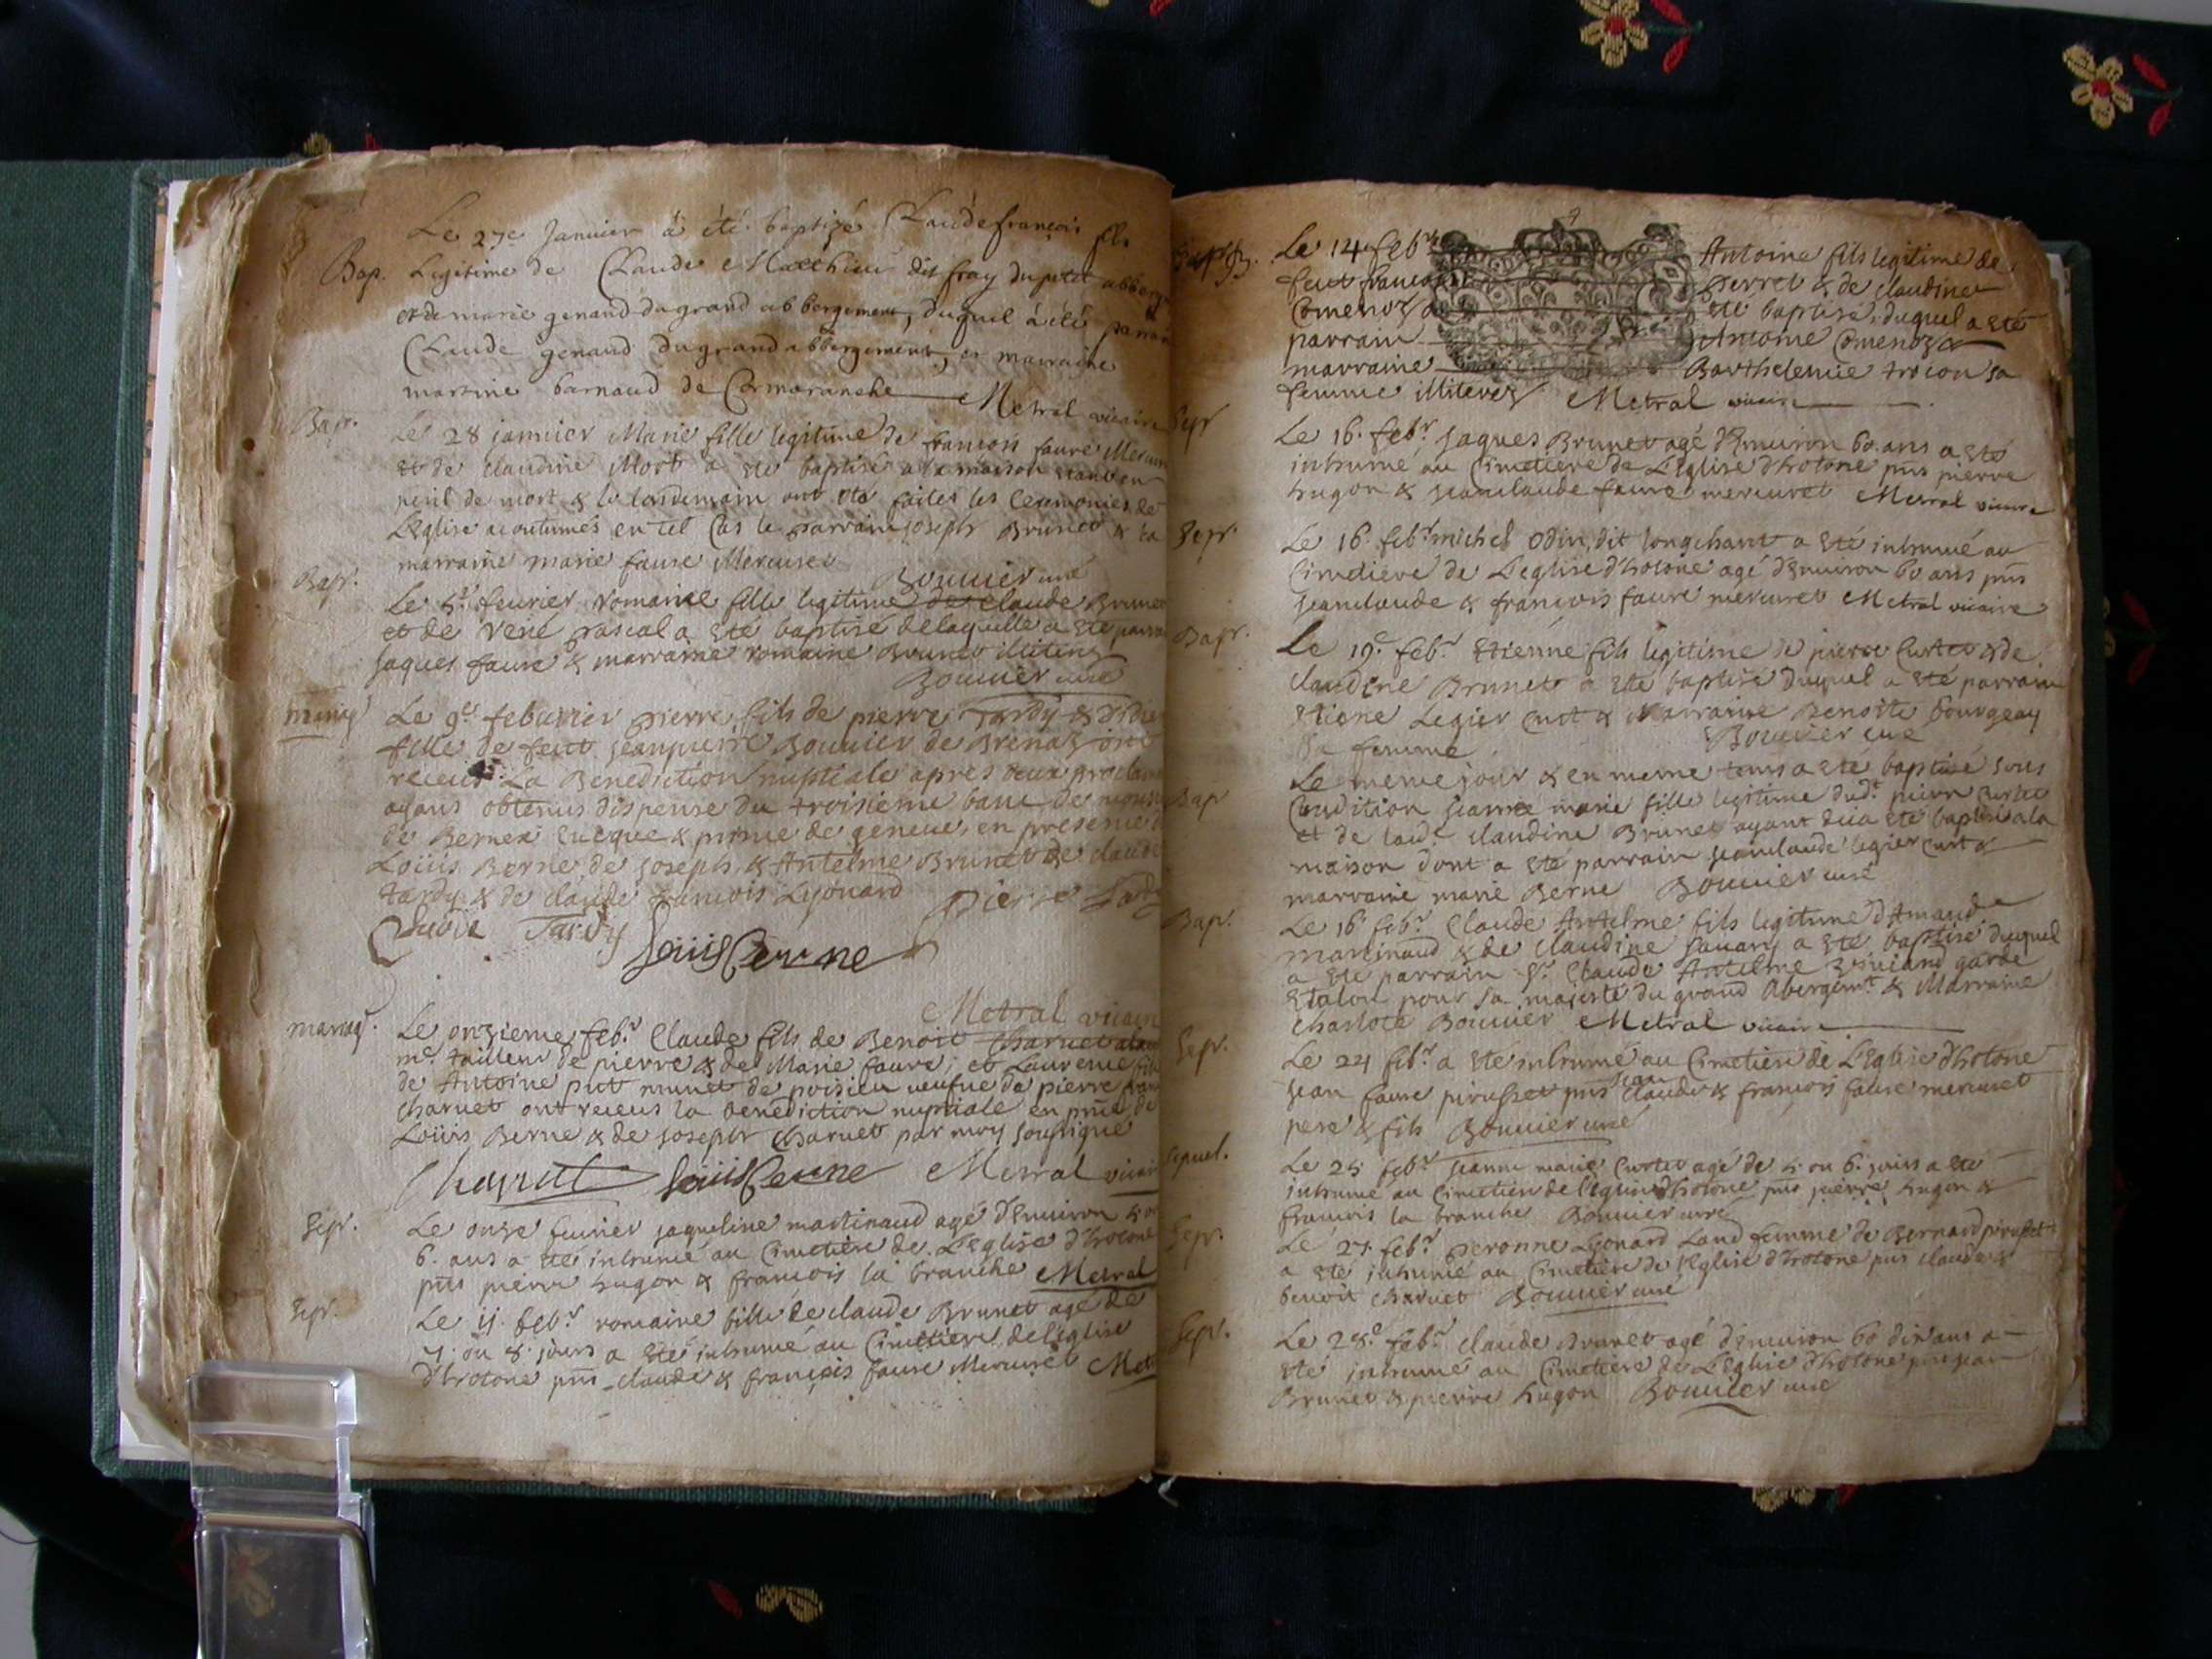 Le 27e Janvier à été baptizé Claudefrançois fils
Bap. Legitime de Claude Matthieu dit fray du petit abberg
et de marie genand du grand abbergement, duquel à été parrain
Claude genand du grand abbergement, et marraine
martine barnaud de Cormaranche Metral vicaire
Bap. Le 28 janvier Marie fille legitime de francois faure Mercur
et de claudine Mort a été baptisé a la maison etant en
peril de mort & le landemain ont été faites les Ceremonies de
L'Eglise acoutumés en tel Cas le parrain joseph Brunet & la
marraine marie faure Mercuret Bouvier curé
Bap. Le 5e fevrier romaine fille legitime de claude Brunet
et de René pascal a été baptisé de laquelle a été parra
jaques faure & marraine romaine Brunet illiterez
Bouvier curé
Le 9e feburier pierre fils de pierre Tardy & didier
fille de feut jeanpierre Bouvier de Brenaz ont
receus La Benediction nuptiale apres deux proclama
ayans obtenus dispense du troisieme banc de monsr
de Bernex Eveque & prince de geneve, en presence d
Loüis Berne, de joseph & Antelme Brunet & de claude
tardy & de claude francois Lyonard Pierre Tardy
Tardy Loüis Berne
Metral vicaire
mariag. Le onzieme febr Claude fils de Benoit Charvet
me tailleur de pierre & de Marie faure; et Laurence fille
de Antoine put munet de poisieu veufue de pierre
charvet ont receus la benediction nuptiale en pnce de
Loüis Berne & de joseph Charvet par moy soussigné
Charvet Loüis Berne Metral vicair
Sepr. Le onze fevrier jaqueline martinaud agé d'Environ 5 ou
6. ans a été inhumé au Cimetiere de L'Eglise d'hotone
pns pierre hugon & francois la branche Metral
Sepr. Le 11 febr romaine fille de claude Brunet agé de
7. ou 8. jours a été inhumé au Cimetiere de l'Eglise
d'hotone pns claude & françois faure Mercuret Met
Le 14 febr Antoine fils legitime de
feut francois perret & de claudine
Comenoz a été baptisé, duquel a été
parrain Antoine Comenoz &
marraine Barthelemie trocon sa
femme illiterez Metral vicaire
Sepr Le 16. febr jaques Brunet agé d'Environ 60. ans a été
inhumé au Cimetiere de L'Eglise d'hotone pns pierre
hugon & jeanclaude faure mercuret Metral vicaire
Sepr. Le 16. febr michel Odin, dit longchant a été inhumé au
Cimetiere de L'eglise d'hotone agé d'Environ 60 ans pns
jeanclaude & francois faure mercuret Metral vicaire
Bap. Le 19e febr Etienne fils legitime de pierre Curtet & de
claudine Brunet a été baptisé duquel a été parrain
Etiene Legier curt & Marraine Benoite bourgeay
Sa femme Bouvier curé
Bap Le meme jour & en meme tems a été baptisé sous
Condition jeanne marie fille legitime dudt pierre curtet
et de lade claudine Brunet ayant deja été baptisé a la
maison dont a été parrain jeanclaude legier curt &
marraine marie Berne Bouvier curé
Bap. Le 16e febr Claude Antelme fils legitime d'Amand
martinaud & de Claudine Savary a été baptisé duquel
a été parrain Sr Claude Antelme garde
Etalon pour sa majesté du grand Abergemt & Marraine
Charlote Bouvier Metral vicaire
Sepr. Le 24 febr a été inhumé au Cimetiere de L'Eglise d'hotone
jean faure pirusset pns jean claude & francois faure mercuret
pere & fils Bouvier curé
sepul. Le 25 febr jeanne marie Curtet agé de 5. ou 6. jours a été
inhumé au Cimetiere de l'eglise d'hotone pns pierre hugon &
francois la branche Bouvier curé
Sepr Le 27 febr peronne Lyonard Land femme de Bernard pirusset
a été inhumé au Cimetiere de l'Eglise d'hotone pns claude &
benoit charvet Bouvier curé
Sepr. Le 28e febr claude Brunet agé d'Environ 60 dix ans a
été inhumé au Cimetiere de L'Eglise d'hotone pns jean
Brunet & pierre hugon Bouvier curé